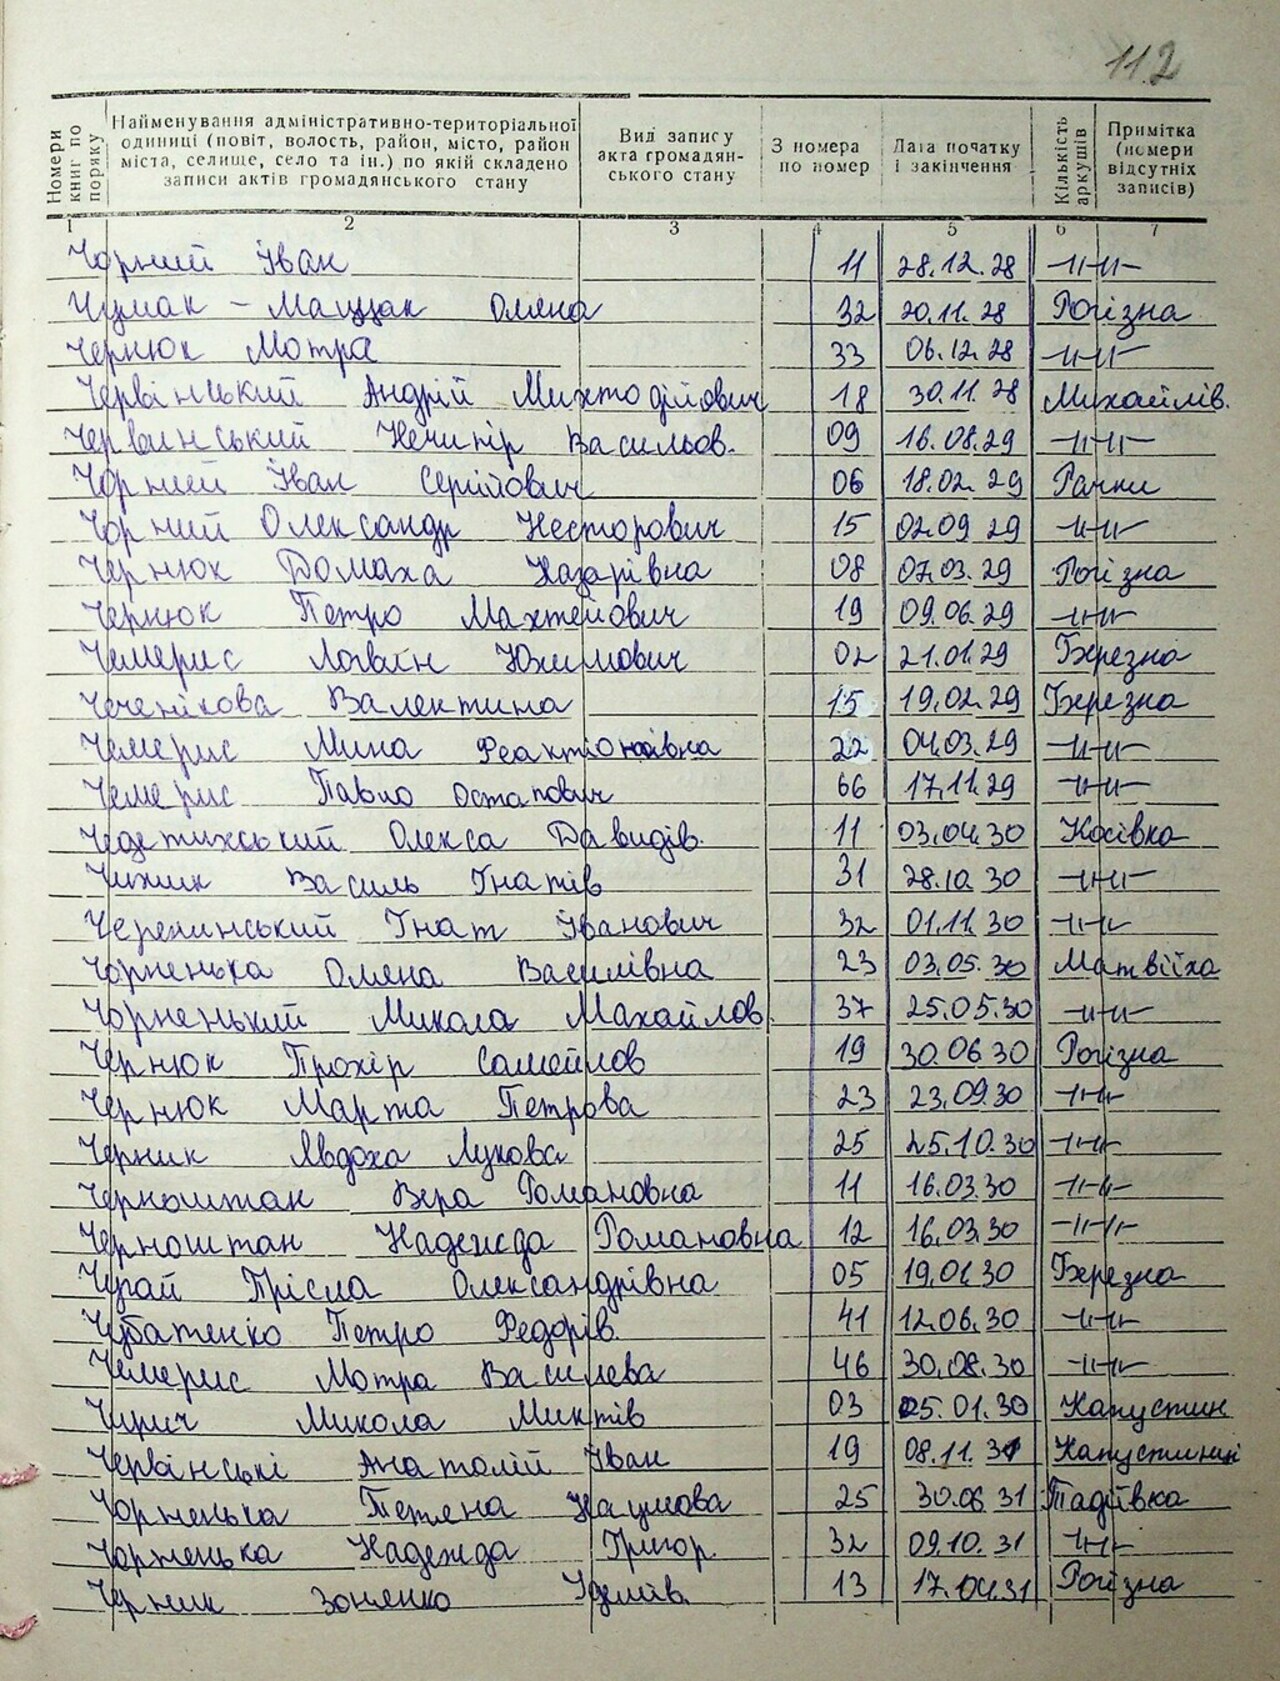 112
Номери книг по поряку
Найменування адміністративно-територіальної одиниці (повіт, волость, район, місто, район міста, селище, село та ін.) по якій складено записи актів громадянського стану
Вид запису акта громадян-ського стану
З номера по номер
Дата початку і закінчення
Кількість аркушів
Примітка (номери відсутніх записів)
1 2 3 4 5 6 7
Чорний Іван 11 28.12.28 -〃-
Чумак - Маццак Олена 32 20.11.28 Рогізна
Чернюк Мотра 33 06.12.28 -〃-
Червінський Андрій Михтодійович 18 30.11.28 Михайлів.
Червинський Нечипір Васильов. 09 16.08.29 -〃-
Чорний Іван Сергійович 06 18.02.29 Рачки
Чорний Олександр Несторович 15 02.09 29 -〃-
Чернюк Домаха Назарівна 08 07.03.29 Рогізна
Чернюк Петро Махтейович 19 09.06.29 -〃-
Чемерис Логвін Юхимович 02 21.01.29 Березна
Чеченікова Валентина 15 19.02.29 Березна
Чемерис Мина 22 04.03.29 -〃-
Чемерис Павло Остапович 66 17.11.29 -〃-
Олекса Давидів. 11 03.04.30 Косівка
Чижик Василь Гнатів 31 28.10.30 -〃-
Черепинський Гнат Іванович 32 01.11.30 -〃-
Чорненька Олена Василівна 23 03.05.30 Матвіїха
Чорненький Микола Махайлов. 37 25.05.30 -〃-
Чернюк Прохір Самойлов 19 30.06 30 Рогізна
Чернюк Марта Петрова 23 23.09.30 -〃-
Черник Явдоха Лукова 25 25.10.30 -〃-
Черноштан Вера Романовна 11 16.03.30 -〃-
Черноштан Надежда Романовна 12 16.03.30 -〃-
Чугай Прісла Олександрівна 05 19.01.30 Березна
Чубатенко Петро Федорів. 41 12.06.30 -〃-
Чемерис Мотра Василева 46 30.08.30 -〃-
Чирич Микола 03 25.01.30 Капустин
Червінські Анатолій Іван 19 08.11.31 Капустинці
Чорненька Тетяна Наумова 25 30.06 31 Тадіївка
Чорненька Надежда Григор. 32 09.10.31 -〃-
Черник 13 17.04.31 Рогізна